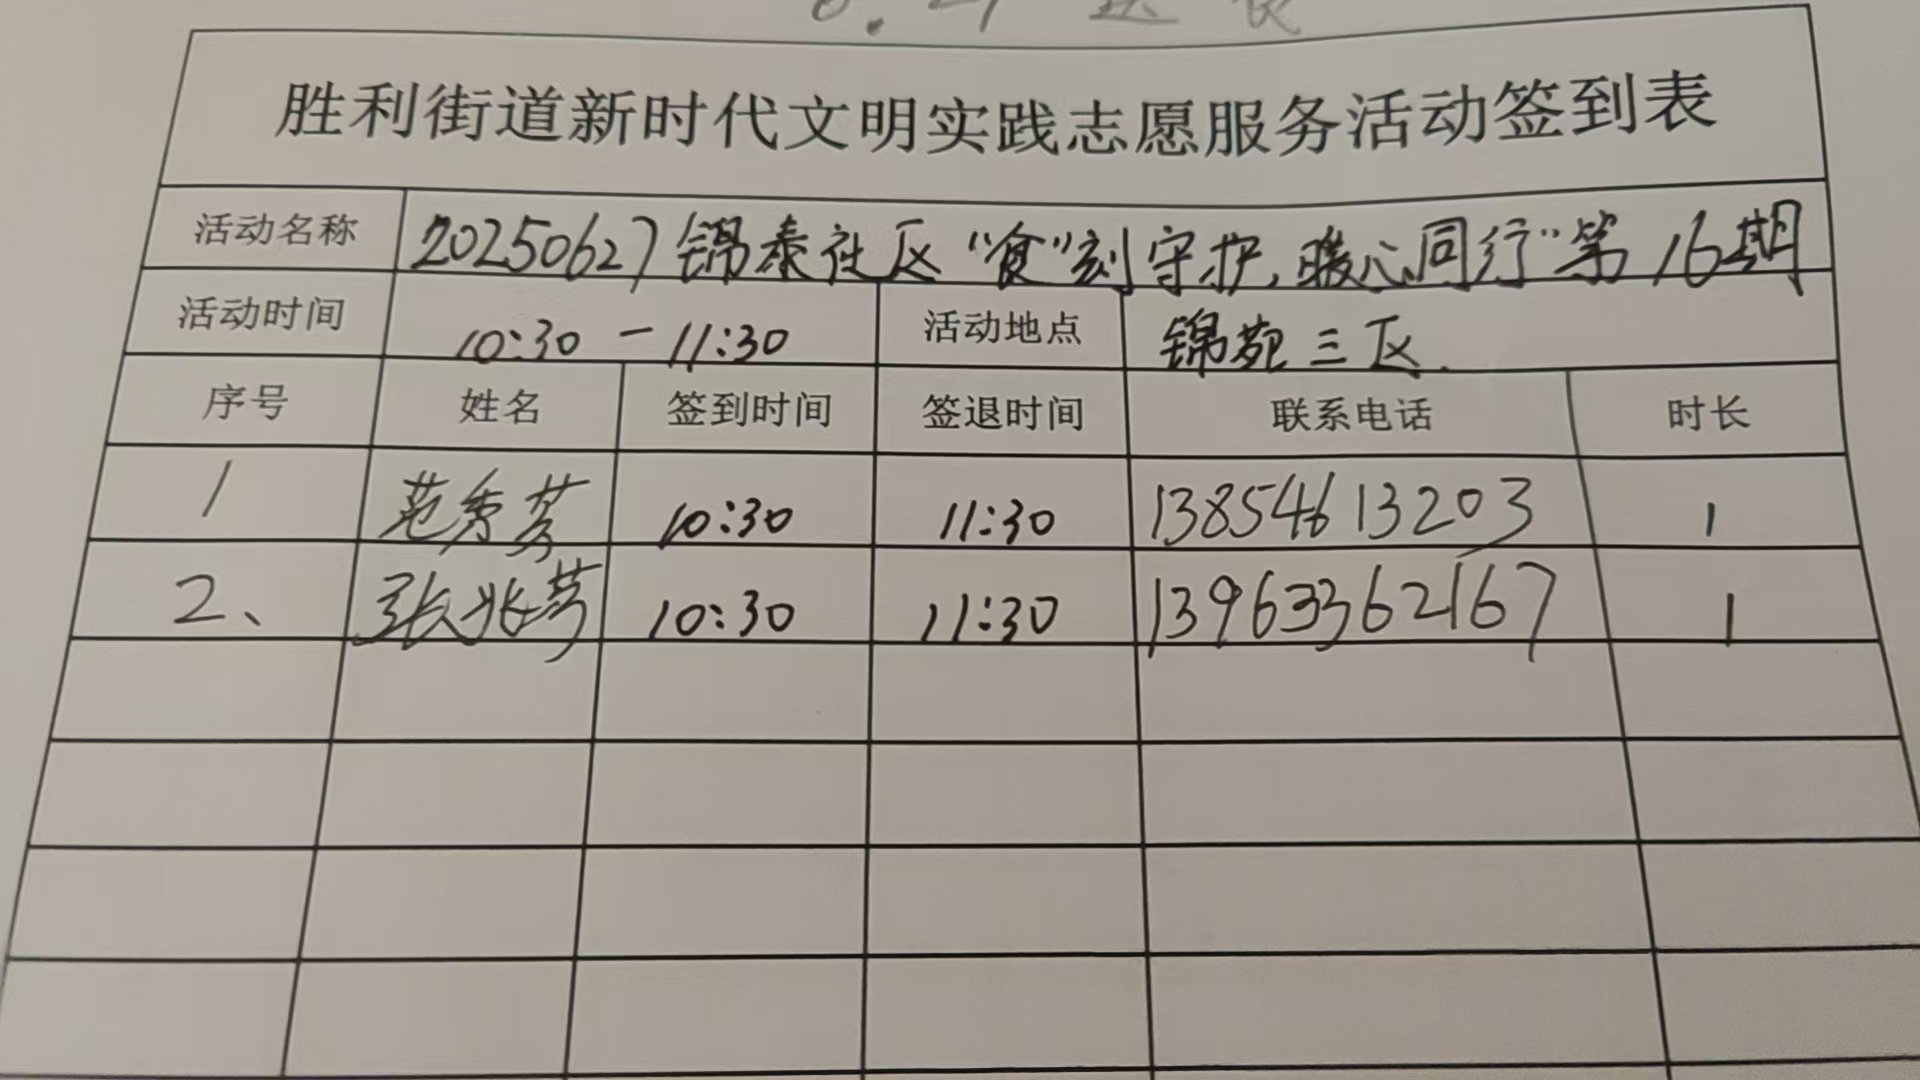 胜利街道新时代文明实践志愿服务活动签到表
活动名称 20250627锦泰社区“食”刻守护,暖心同行”第16期
活动时间 10:30-11:30 活动地点 锦苑三区.
序号 姓名 签到时间 签退时间 联系电话 时长
1 范秀芳 10:30 11:30 13854613203 1
2、 张兆芳 10:30 11:30 13963362167 1